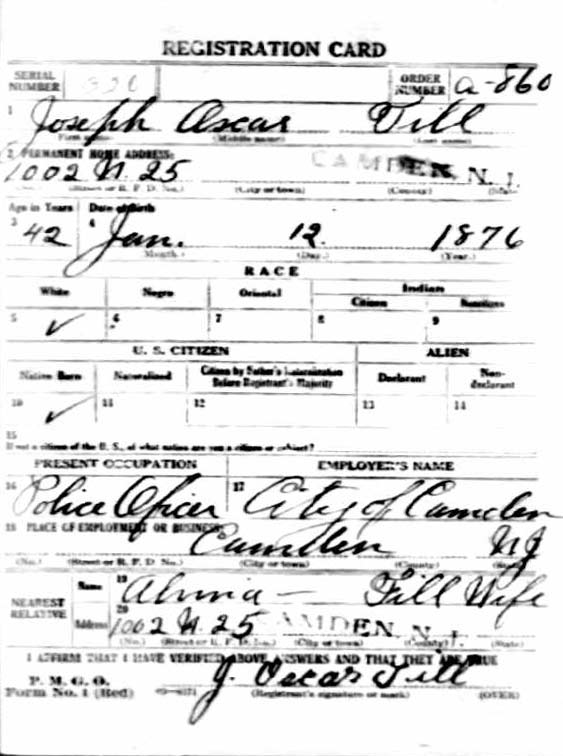 REGISTRATION CARD
SERIAL NUMBER ORDER NUMBER a-860
1 Joseph Oscar Till
(First name) (Middle name) (Last name)
2 PERMANENT HOME ADDRESS:
1002 N. 25 CAMDEN, N. J.
(No.) (Street or R. F. D. No.) (City or town) (County) (State)
Age in Years Date of Birth
3 42 4 Jan. 12 1876
(Month.) (Day.) (Year.)
RACE
White Negro Oriental Indian
Citizen Noncitizen
5 ✓ 6 7 8 9
U. S. CITIZEN ALIEN
Native Born Naturalized Citizen by Father's Naturalization Before Registrant's Majority Declarant Non-declarant
10 ✓ 11 12 13 14
15
If not a citizen of the U. S., of what nation are you a citizen or subject?
PRESENT OCCUPATION EMPLOYER'S NAME
16 Police Oficer 17 City of Camden
18 PLACE OF EMPLOYMENT OR BUSINESS:
Camden NJ
(No.) (Street or R. F. D. No.) (City or town) (County) (State)
NEAREST RELATIVE Name 19 Till Wife
Address 20 1002 N. 25 CAMDEN, N. J.
(No.) (Street or R. F. D. No.) (City or town) (County) (State)
I AFFIRM THAT I HAVE VERIFIED ABOVE ANSWERS AND THAT THEY ARE TRUE
P. M. G. O.
Form No. 1 (Red) J. Oscar Till
(Registrant's signature or mark) (OVER)